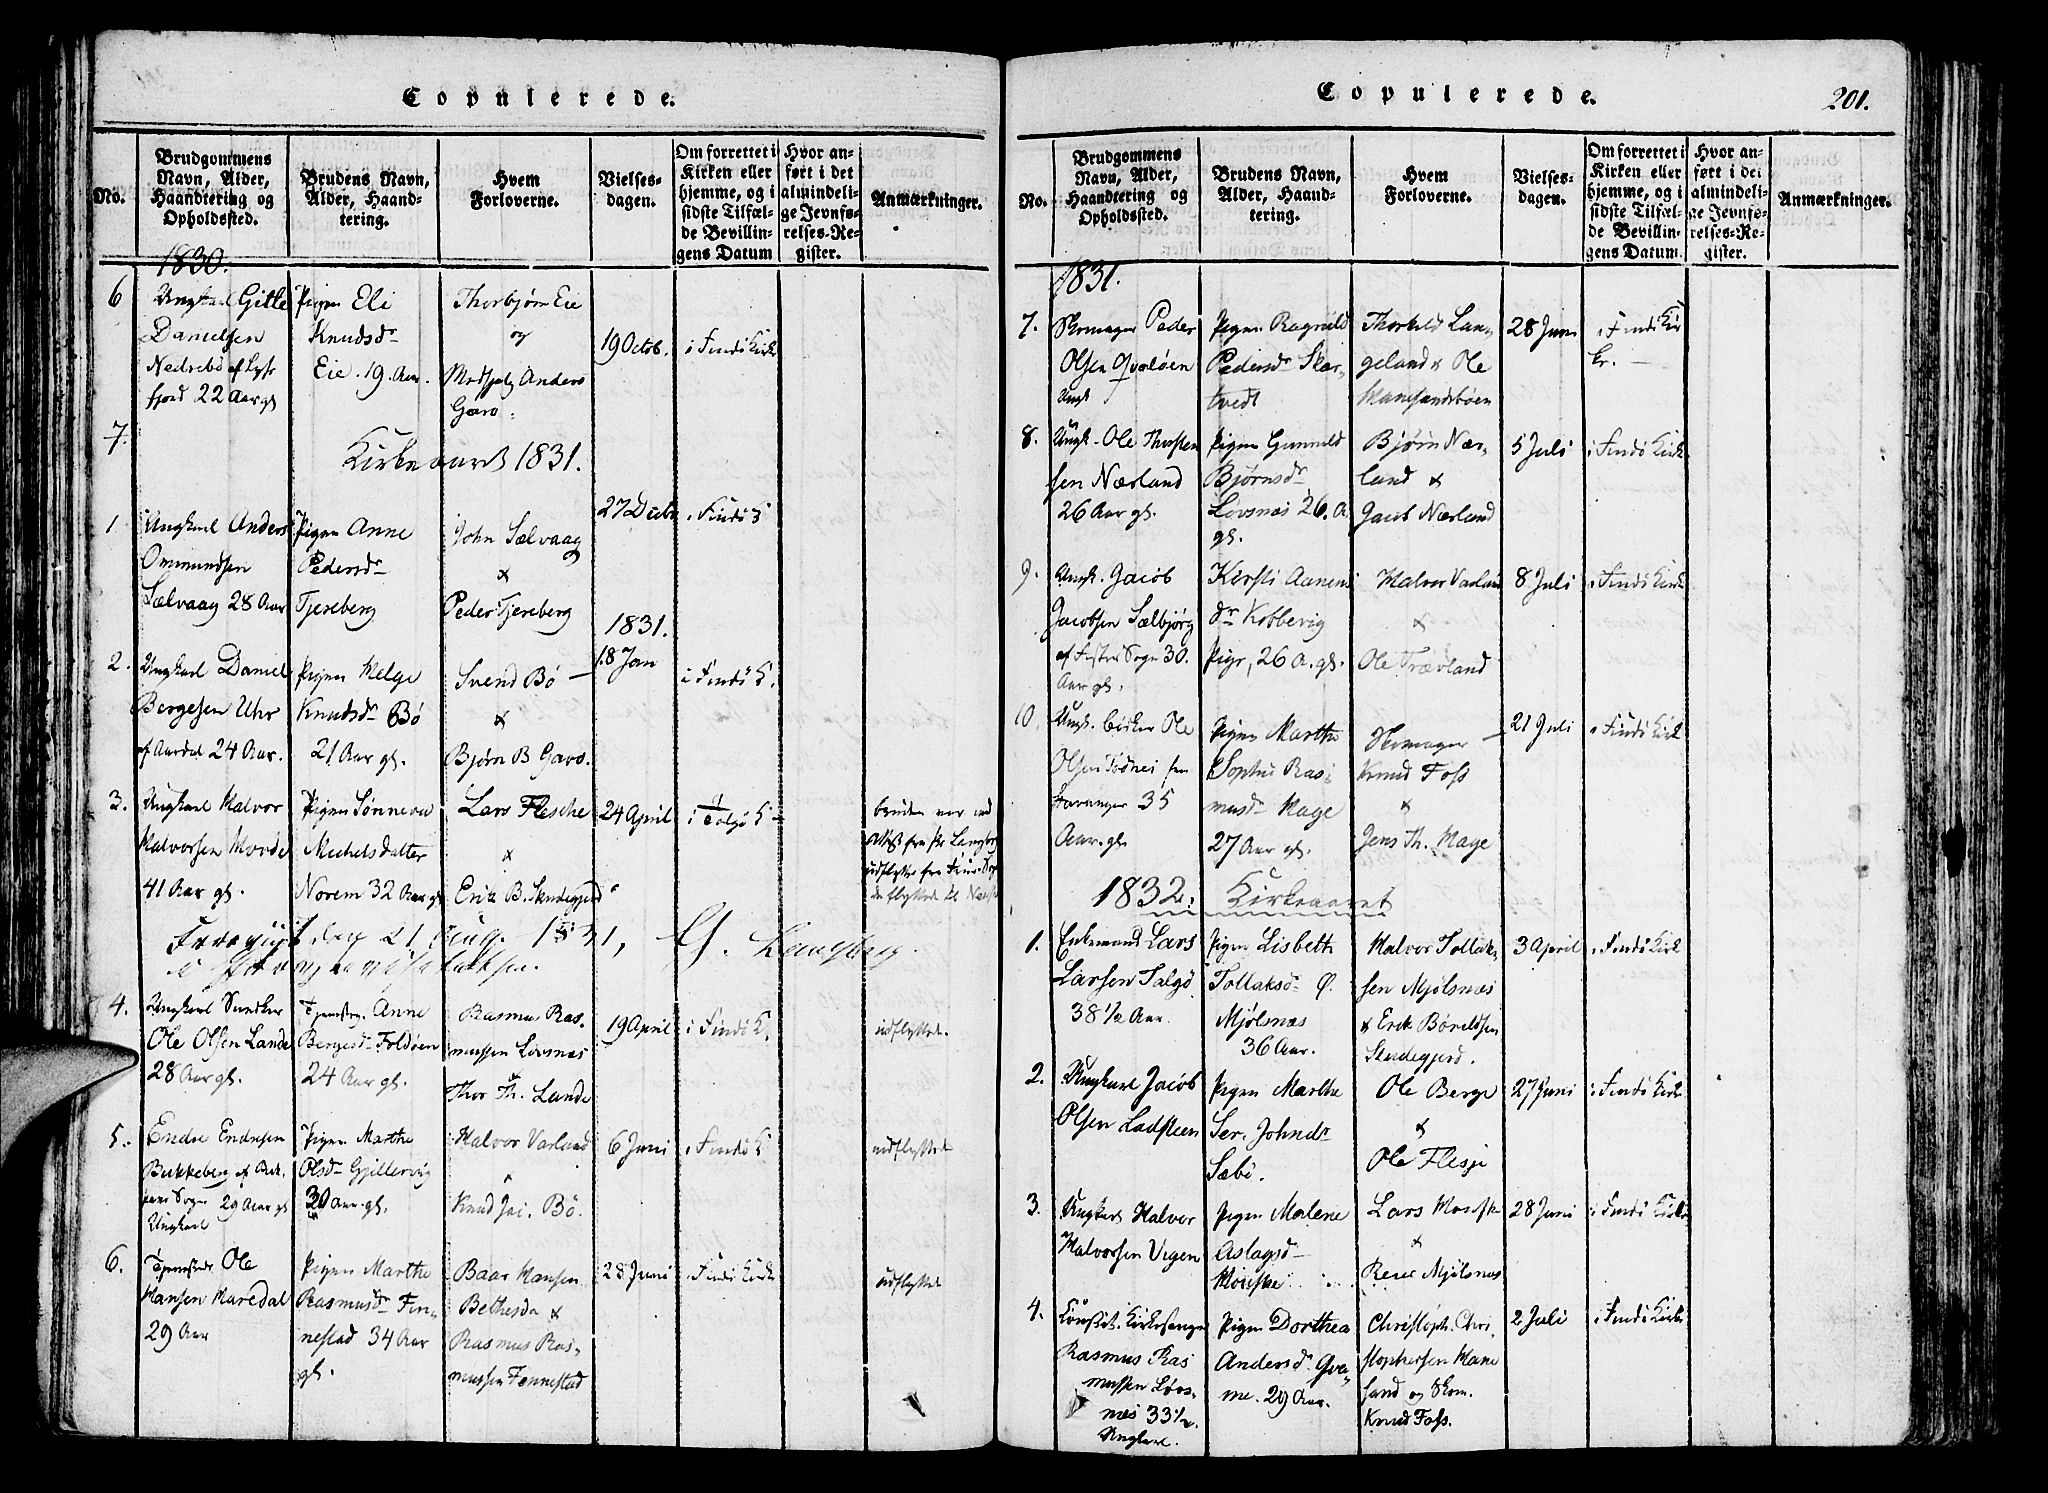 Copulerede.
No.
Brudgommens
Navn, Alder,
Haandtering og
Opholdssted.
Brudens Navn,
Alder, Haand-
tering.
Hvem
Forloverne.
Vielses-
dagen.
Om forrettet i
Kirken eller
hjemme, og i
sidste Tilfæl-
de Bevillin-
gens Datum
Hvor an-
ført i det
almindeli-
ge Jevnfø-
relses-Re-
gister.
Anmærkninger.
1830.
6
Gitle
Danielsen
Nedrebø af
fjord 22 Aar gl
Pigen Eli
Knudsdr
Eie. 19. Aar.
Thorbjørn Eie
og
Anders
Garo.
19 Octob.
i Findö Kirk
7
Kirkeaaret 1831.
1
Ungkarl Anders
Ommundsen
Sælvaag 28 Aar
Pigen Anne
Pedersdr
Tjereberg
John Sælvaag
&
Peder Tjereberg
27 Decbr
i Findö K
1831.
2.
Ungkarl Daniel
Bergesen Uhr
af Aardal 24 Aar.
Pigen Helge
Knudsdr Bö
21 Aar gl.
Svend Bö
&
Bjørn B Garo.
18 Jan
i Findö K.
3.
Ungkarl Halvor
Halvorsen Hovde
41 Aar gl.
Pigen Sønneva
Michelsdatter
Norem 32 Aar gl
Lars Flesche
&
Erik B. Skudegjerd
24 April
i Talgö K
4.
Ungkarl
Ole Olsen Lande
28 Aar gl.
Anne
Bergesdr Foldöen
24 Aar gl.
Rasmus Ras-
mussen Lovsnæs
&
Thor Th. Lande
19 April
i Findö K.
udflyttet.
5.
Endre Endresen
Bukkeberg af
Sogn 29 Aar gl
Ungkarl
Pigen Marthe
Olsdr Gjillervig
30 Aar gl.
Halvor Varland
Knud Jac. Bö.
6 Juni
i Findö K
udflyttet
6.
Ole
Hansen Maredal
29 Aar
Pigen Marthe
Rasmusdr Fen-
nestad 34 Aar
gl.
Baar Hansen
Bethesda &
Rasmus Ras-
mussen Fennestad
28 Juni
i Findö Kirke
udflyttet
Copulerede.
201.
No.
Brudgommens
Navn, Alder,
Haandtering og
Opholdssted.
Brudens Navn,
Alder, Haand-
tering.
Hvem
Forloverne.
Vielses-
dagen.
Om forrettet i
Kirken eller
hjemme, og i
sidste Tilfæl-
de Bevillin-
gens Datum.
Hvor an-
ført i det
almindeli-
ge Jevnfø-
relses-Re-
gister.
Anmærkninger.
1831.
7.
Skomager Peder
Olsen
Ungk
Pigen Ragnild
Pedersdr Skar-
tvedt
Thorkild Lan-
geland & Ole
28 Juni
i Findö Kir
ke.
8.
Ungk. Ole Thorsten
sen Nærland
26 Aar gl.
Pigen Gunnild
Bjørnsdr
Lovsnæs 26. A
gl.
Bjørn Nær-
land &
Jacob Nærland
5 Juli
i Findö Kirk
9.
Ungk. Jacob
Jacobsen Sælbjørg
af Sogn 30.
Aar gl.
Kirsti Aanens
dr Kobbevig
Pige, 26 A. gl.
Halvor Varland
&
Ole Trævland
8 Juli
i Findö Kirk
10
Ungk. bödker Ole
Olsen
Stavanger 35
Aar gl.
Pigen Marthe
Sophie Ras-
musdr Hage
27 Aar gl.
Skomager
Knud Foss
&
Jens Th. Hage
21 Juli
i Findö Kirk
1832. Kirkeaaret
1.
Enkemand Lars
Larsen Talgö
38 1/2 Aar.
Pigen Lisbeth
Tollaksdr Ø.
Mjölsnæs
36 Aar.
Halvor Tollak-
sen Mjölsnæs
& Erik
Skudegjerd.
3 April
i Findö Kirk
2.
Ungkarl Jacob
Olsen Ladsteen
Pigen Marthe
Ser. Johnsdr
Sæbö.
Ole Berge
&
Ole Flesje
27 Juni
i Findö Kirk
3.
Ungkarl Halvor
Halvorsen Vigen
Pigen Malene
Aslagsdr
Lars
&
Mjölsnæs
28 Juni
i Findö Kirke
4.
Constit. Kirkesanger
Rasmus Ras
mussen Lövs-
næs 33 1/2.
Ungkarl.
Pigen Dorthea
Andersdr Qva-
me. 29 Aar.
Christoph. Chri-
stophersen Hane
sand og Skom.
Knud Foss.
2 Juli
i Findö Kirke